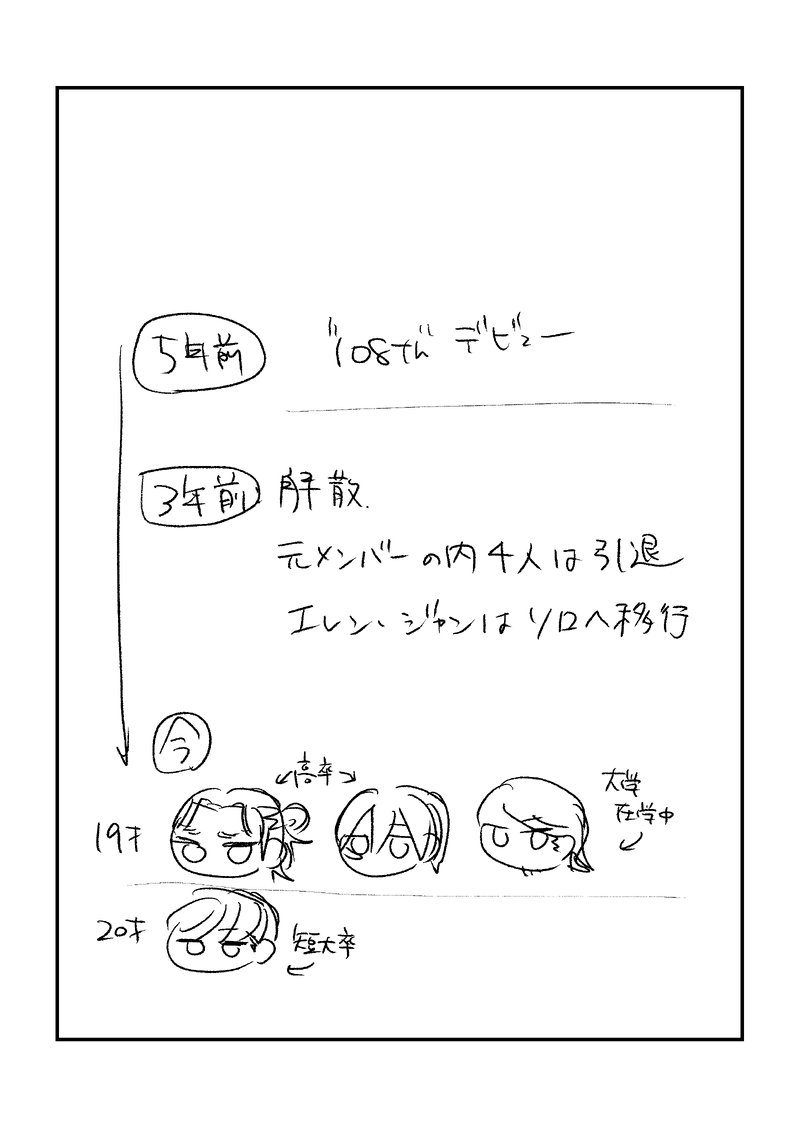 5年前
"108th" デビュー
3年前 解散.
元メンバーの内4人は引退
エレン、ジャンはソロへ移行
今
高卒
大学
在学中
19才
20才
短大卒